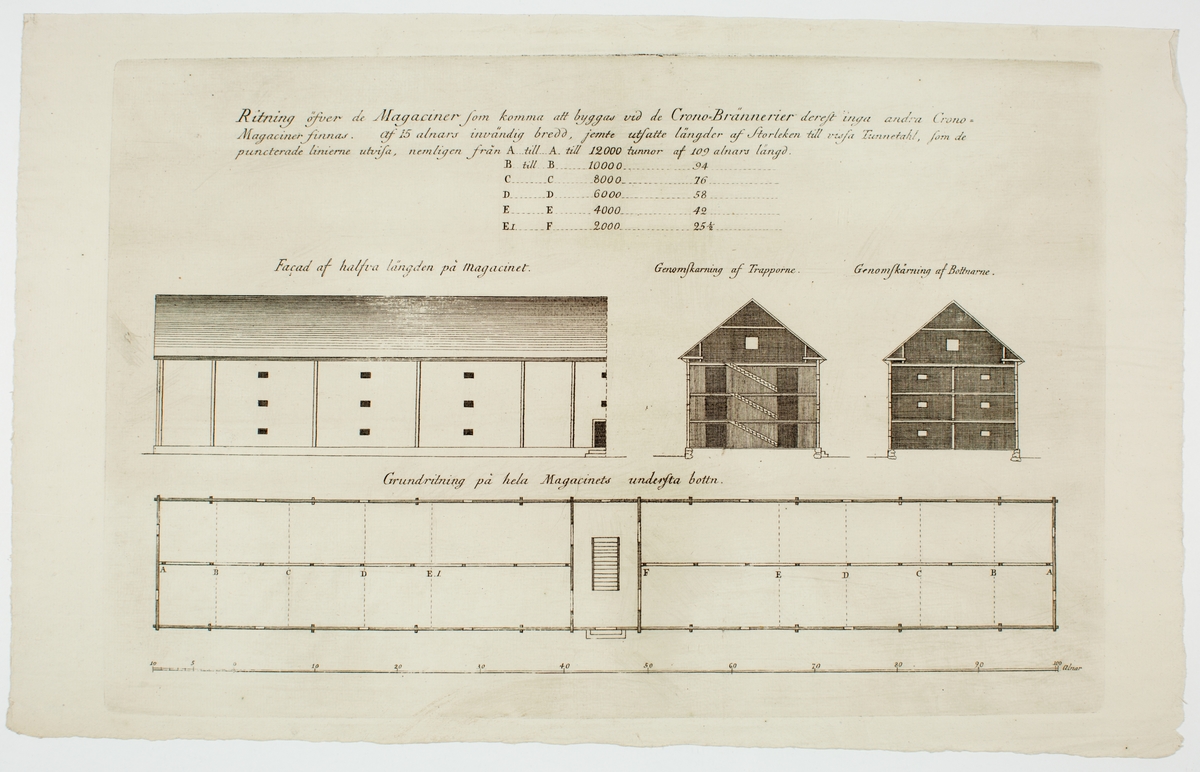 Ritning öfver de Magaciner som komma att byggas vid de Crono-Brännerier derest inga andra Crono-
Magaciner finnas. af 15 alnars invändig bredd, jemte utsatte längder af Storleken till vissa Tunnetahl, som de
puncterade linierne utvisa, nemligen från A till A till 12000 tunnor af 109 alnars längd.
B till B 10000 94
C C 8000 76
D D 6000 58
E E 4000 42
E1 F 2000 25½
Façad af halfva längden på Magacinet.
Genomskärning af Trapporne.
Genomskärning af Bottnarne.
Grundritning på hela Magacinets understa bottn.
A B C D E1 F E D C B A
10 5 0 10 20 30 40 50 60 70 80 90 100 Alnar